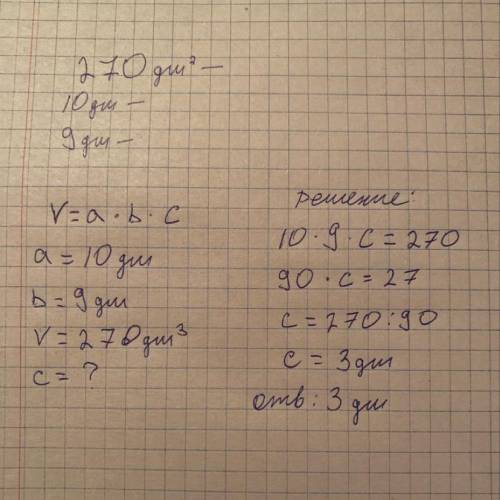 270 дм³ —
10 дм —
9 дм —
V = a · b · c
a = 10 дм
b = 9 дм
V = 270 дм³
c = ?
решение:
10 · 9 · c = 270
90 · c = 27
c = 270 : 90
c = 3 дм
отв: 3 дм